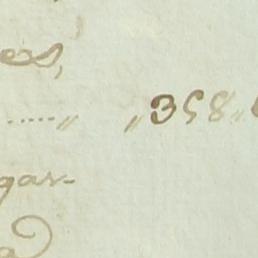 es,
....." "358"
gar-
a